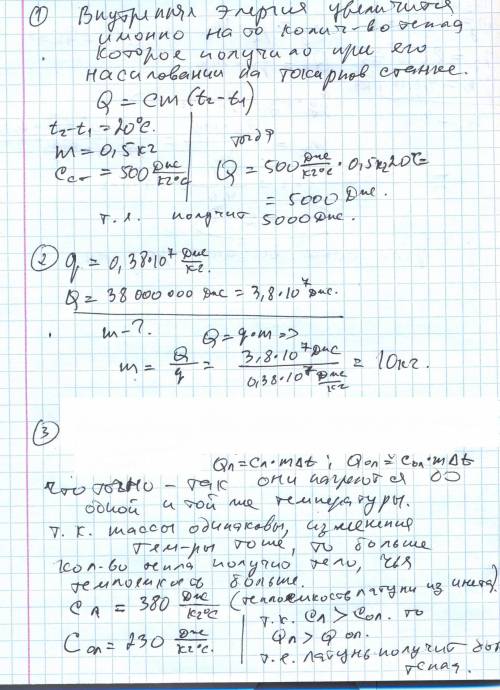 ① Внутренняя энергия увеличится
именно на то колич-во тепла
которое получило при его
на токарном станке.
Q = cm (t₂-t₁)
t₂-t₁ = 20°C.
m = 0,5 кг
Cст = 500 Дж/кг°C
тогда
Q = 500 Дж/кг°C · 0,5кг 20°C =
= 5000 Дж.
т.е. получит 5000 Дж.
② q = 0,38·10⁷ Дж/кг.
Q = 38 000 000 Дж = 3,8·10⁷ Дж.
m - ?
Q = q·m =>
m = Q/q = 3,8·10⁷ Дж / 0,38·10⁷ Дж/кг = 10 кг.
③
Qл = Cл·mΔt ; Qол = Cол·mΔt
что точно - так они нагреются до
одной и той же температуры.
т.к. массы одинаковы, изменения
тем-ры тоже, то больше
кол-во тепла получило тело, чья
теплоемкость больше.
Cл = 380 Дж/кг°C (теплоемкость латуни из инета).
Cол = 230 Дж/кг°C.
т.к. Cл > Cол. то
Qл > Qол.
т.е. латунь получит
тепла.